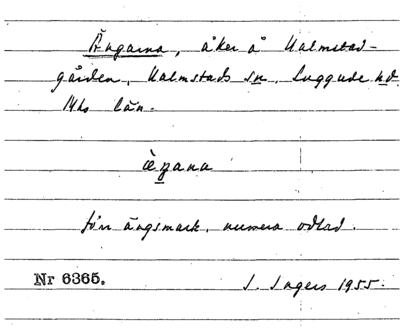 Ängarna, åker å Kalmstad-
gården, Kalmstads sn, Luggude hd.
Mhs län.
ængana
förr ängsmark, numera odlad.
Nr 6365. I. Ingers 1955.